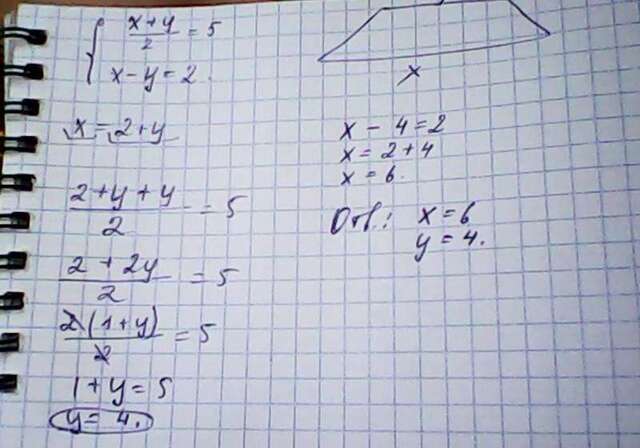 { (x+y)/2 = 5
x - y = 2.
x = 2+y
(2+y+y)/2 = 5
(2+2y)/2 = 5
2(1+y)/2 = 5
1+y = 5
y = 4.
x
x - 4 = 2
x = 2+4
x = 6.
Отв.: x = 6
y = 4.